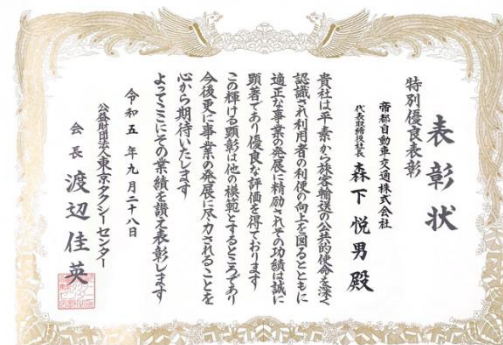 表彰状
特別優良表彰
帝都自動車交通株式会社
代表取締役社長 森下悦男殿
貴社は平素から旅客輸送の公共的使命を深く
認識され利用者の利便の向上を図るとともに
適正な事業の発展に精励されその功績は誠に
顕著であり優良な評価を得ております
この輝ける顕彰は他の模範とするところであり
今後更に事業の発展に尽力されることを
心から期待いたします
よってここにその業績を讃え表彰します
令和五年九月二十八日
公益財団法人東京タクシーセンター
会長 渡辺佳英